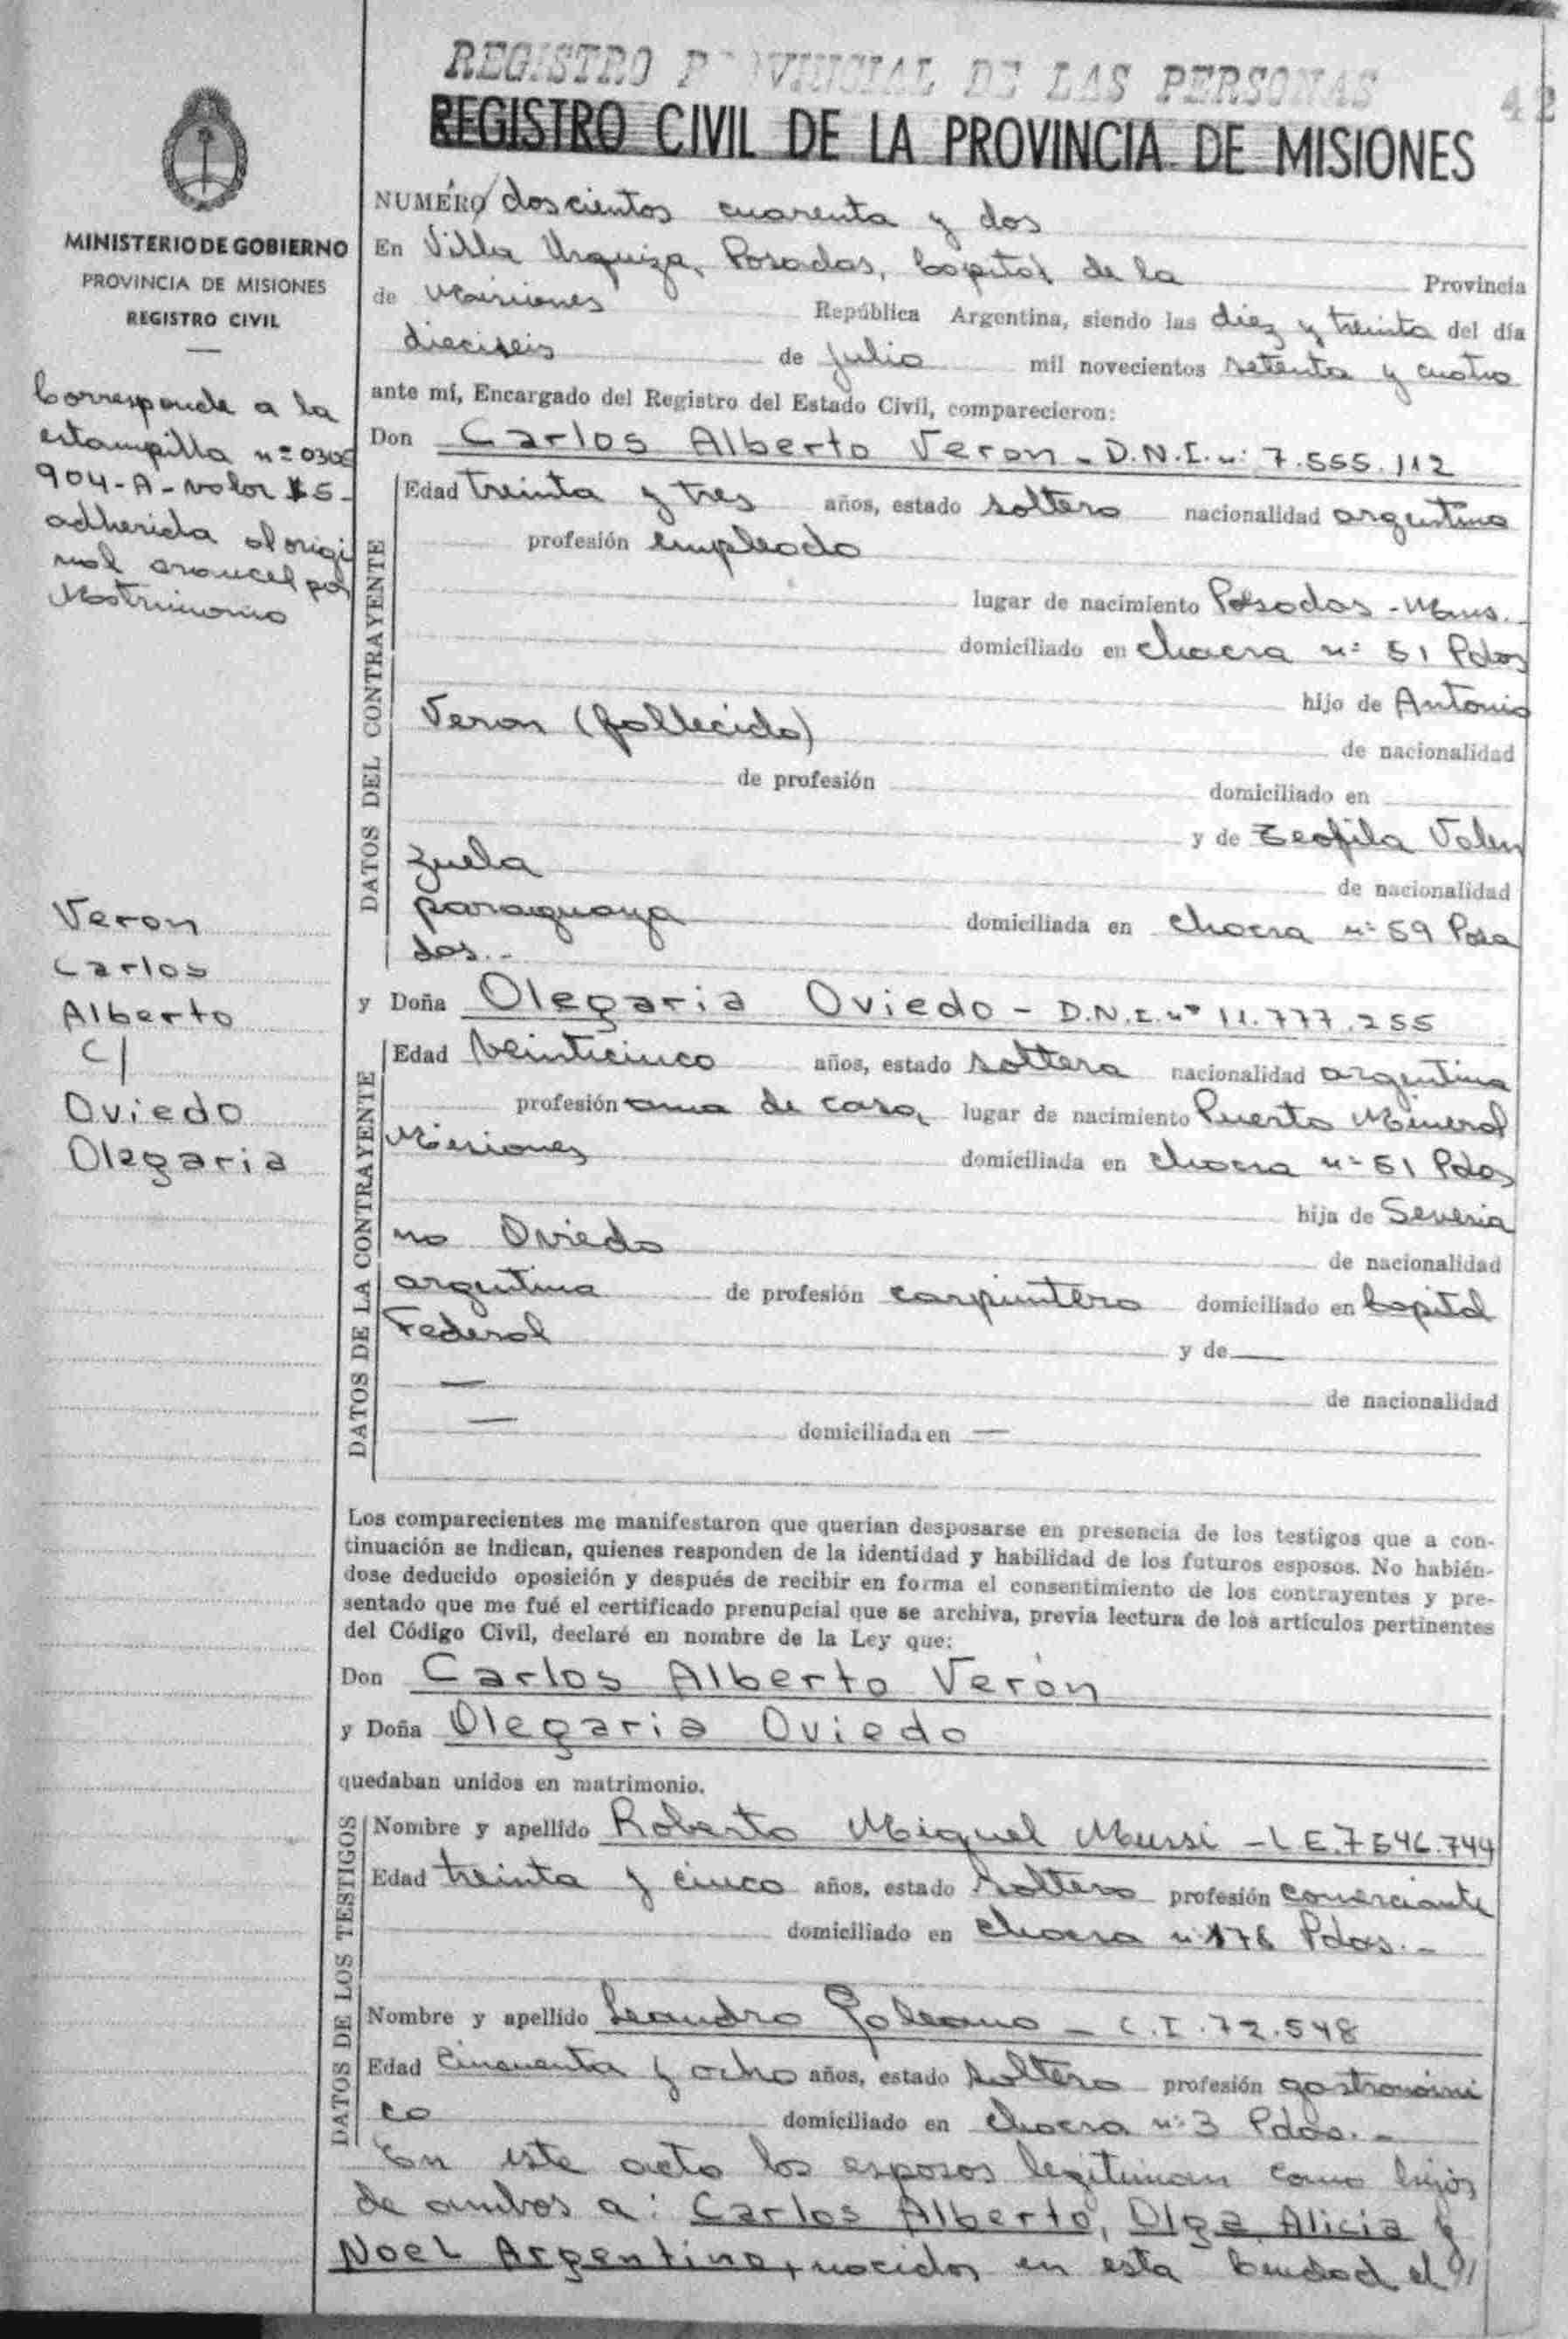 REGISTRO PROVINCIAL DE LAS PERSONAS
42
REGISTRO CIVIL DE LA PROVINCIA DE MISIONES
MINISTERIO DE GOBIERNO
PROVINCIA DE MISIONES
REGISTRO CIVIL
Corresponde a la
estampilla nº 0300
904-A-valor $5-
adherida al origi
nal arancel por
Matrimonio
Veron
Carlos
Alberto
C/
Oviedo
Olegaria
NUMERO doscientos cuarenta y dos
En Villa Urquiza, Posadas, Capital de la Provincia
de Misiones República Argentina, siendo las diez y treinta del día
dieciseis de Julio mil novecientos setenta y cuatro
ante mí, Encargado del Registro del Estado Civil, comparecieron:
Don Carlos Alberto Veron - D.N.I. nº 7.555.112
DATOS DEL CONTRAYENTE
Edad treinta y tres años, estado soltero nacionalidad argentina
profesión empleado
lugar de nacimiento Posadas - Mnes.
domiciliado en chacra nº 51 Pdas
hijo de Antonio
Veron (fallecido)
de nacionalidad
de profesión domiciliado en
y de Teofila Valen
zuela
de nacionalidad
paraguaya domiciliada en chacra nº 59 Posa
das.-
y Doña Olegaria Oviedo - D.N.I. nº 11.777.255
DATOS DE LA CONTRAYENTE
Edad veinticinco años, estado soltera nacionalidad argentina
profesión ama de casa, lugar de nacimiento Puerto Mineral
Misiones domiciliada en chacra nº 51 Pdas
hija de Severia
no Oviedo
de nacionalidad
argentina de profesión carpintero domiciliado en Capital
Federal y de —
— de nacionalidad
— domiciliada en —
Los comparecientes me manifestaron que querían desposarse en presencia de los testigos que a con-
tinuación se indican, quienes responden de la identidad y habilidad de los futuros esposos. No habién-
dose deducido oposición y después de recibir en forma el consentimiento de los contrayentes y pre-
sentado que me fué el certificado prenupcial que se archiva, previa lectura de los artículos pertinentes
del Código Civil, declaré en nombre de la Ley que:
Don Carlos Alberto Verón
y Doña Olegaria Oviedo
quedaban unidos en matrimonio.
DATOS DE LOS TESTIGOS
Nombre y apellido Roberto Miguel Mussi - L E. 7546.744
Edad treinta y cinco años, estado soltero profesión comerciante
domiciliado en chacra nº 176 Pdas.-
Nombre y apellido Leandro Galeano - C.I. 72.548
Edad cincuenta y ocho años, estado soltero profesión gastronómi
co domiciliado en chacra nº 3 Pdas.-
En este acto los esposos legitiman como hijos
de ambos a: Carlos Alberto, Olga Alicia y
Noel Argentino, nacidos en esta Ciudad el